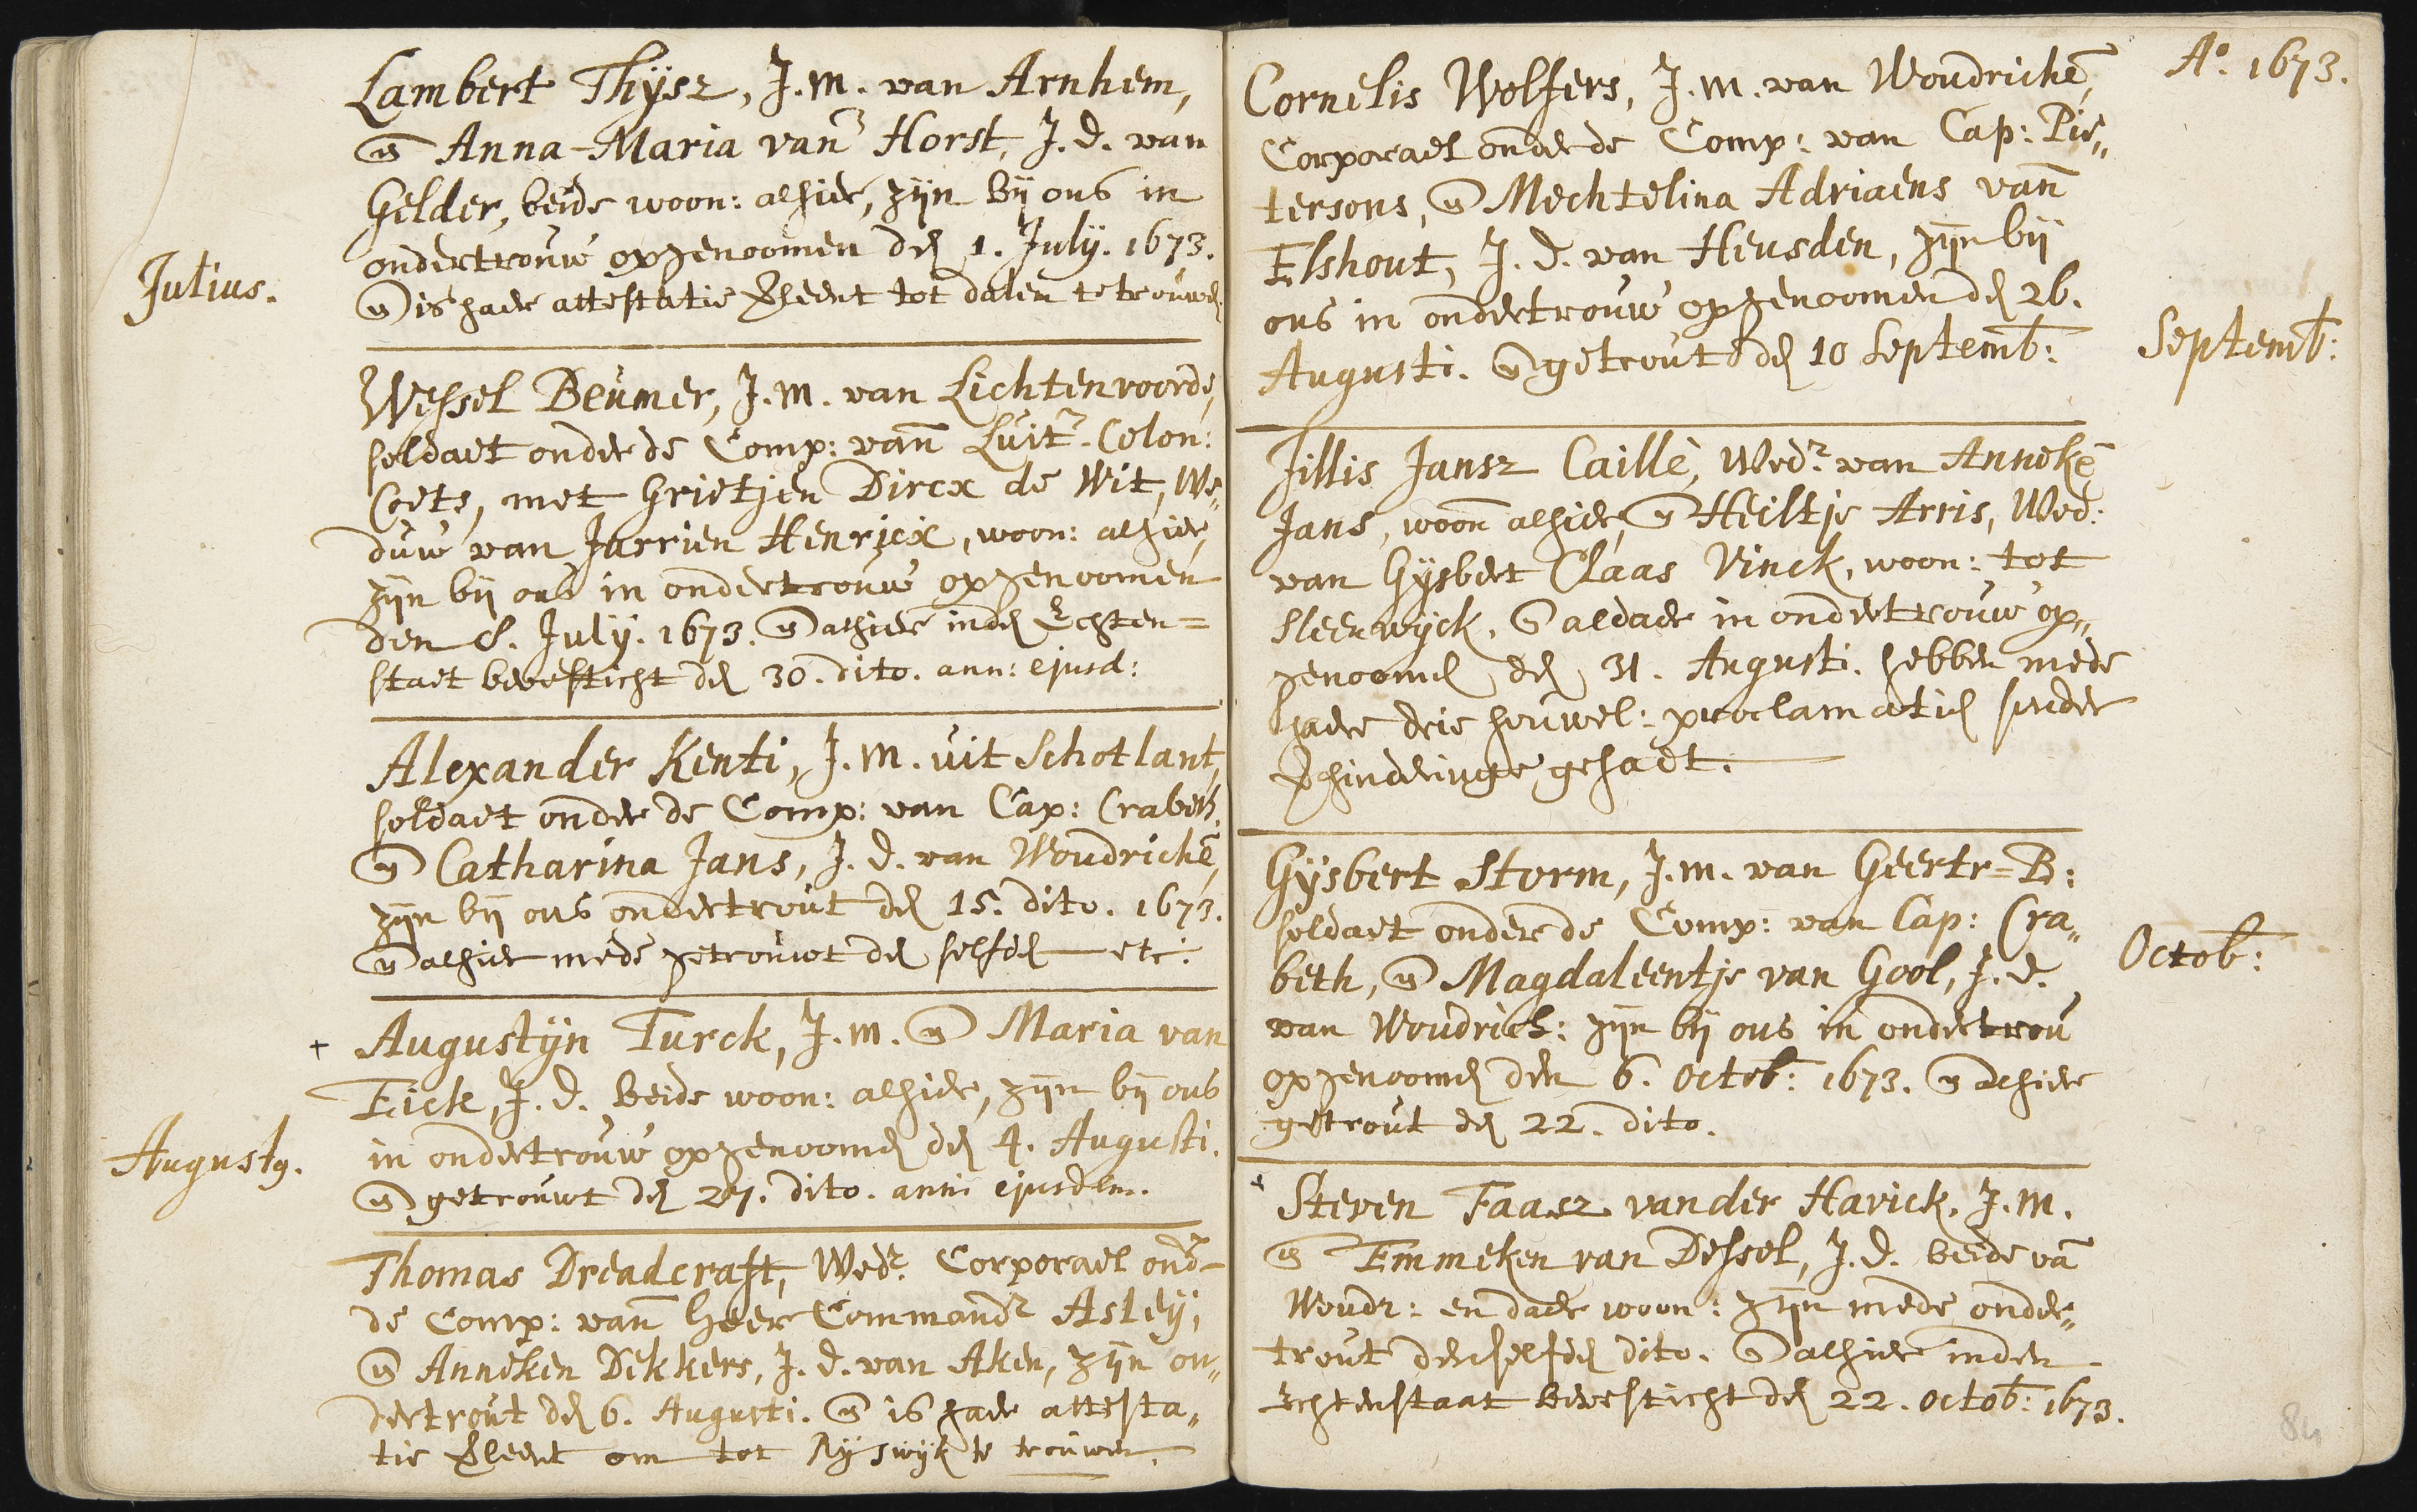 Lambert Thÿsz, J.M. van Arnhem,
en Anna-Maria vander Horst, J.d. van
Gelder, beide woon: alhier, zijn bij ons in
ondertrouw opgenoomen den 1. Julÿ. 1673.
Julius.
en is haer attestatie verleent tot dalem te trouwen
Wessel Beumer, J.M. van Lichtenvoorde,
soldaet onder de Comp: vann Luitr-Colon:
Coets, met Grietjen Dircx de Wit, We„
duw van Jurrien Henricx, woon: alhier,
zijn bij ons in ondertrouw opgenoomen
den 8. Julÿ. 1673. en alhier inden Echten=
staet bevesticht den 30. dito. ann: ejusd:
Alexander Kenti, J.M. uit Schotlant,
soldaet onder de Comp: van Cap: Crabeth.
en Catharina Jans, J.d. van Woudrichē,
zijn bij ons ondertrout den 15. dito. 1673.
en alhier mede getrouwt den selfden etc:
+ Augustÿn Turck, J.M. en Maria van
Eick, J.d. beide woon: alhier, zijn bij ons
in ondertrouw opgenoomen den 4. Augusti.
Augustus.
en getrouwt den 27. dito. anni ejusdem.
Thomas Dreadcraft, Wedr. Corporael ondr
de Comp: vann Heer Commandr Aslëÿ,
en Anneken Dekkers, J.d. van Aken, zijn on„
dertrout den 6. Augusti. en is haer attesta„
tie verleent om tot Rÿswÿk te trouwen.
Ao. 1673.
Cornelis Wolfers, J.M. van Woudrichē,
Corporael onder de Comp: van Cap: Pie„
tersons, en Mechtelina Adriaens vann
Elshout, J.d. van Heusden, zijn bij
ons in ondertrouw opgenoomen den 26.
Septemb:
Augusti. en getrout den 10 Septemb:
Jillis Jansz Caillè, Wedr. van Annekē
Jans, woon alhier, en Heiltje Arris, Wed:
van Gÿsbert Claas Vinck, woon: tot
Sleenwijck, en aldaer in ondertrouw op„
genoomen den 31. Augusti. hebben mede
haer drie houwel: proclamatien sonder
verhinderinge gehadt.
Gÿsbert Storm, J.M. van Geertr=B:
soldaet onder de Comp: van Cap: Cra„
Octob:
beth, en Magdaleentje van Gool, J.d.
van Woudrich: zijn bij ons in ondertrou
opgenoomen den 6. Octob: 1673. en alhier
getrout den 22. dito.
+ Steven Faasz vander Havick, J.M.
en Emmeken van Dessel, J.d. beide vā
Woudr: en daer woon: zijn mede onder„
trout den selfden dito. en alhier inden
Echtenstaat bevesticht den 22. Octob: 1673.
84